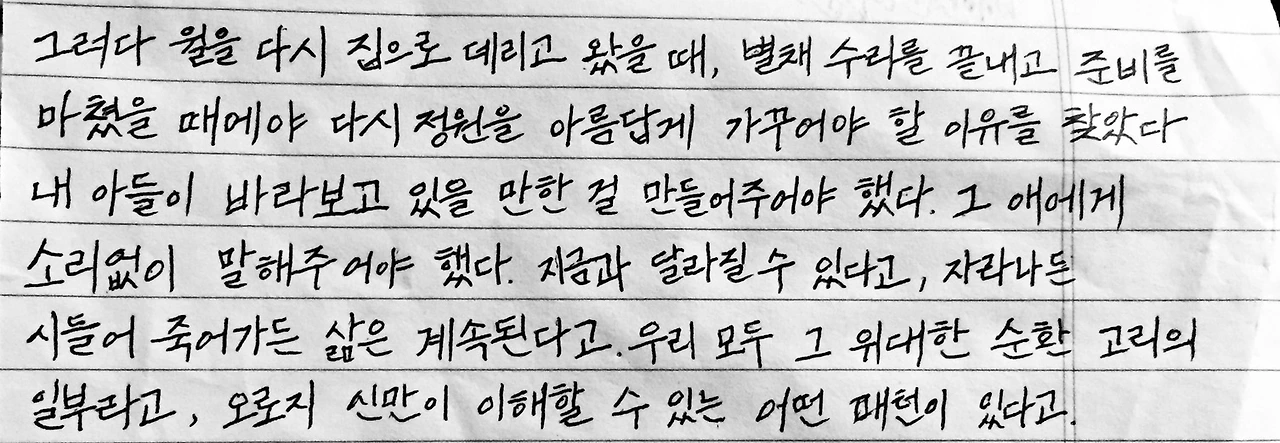 그러다 윌을 다시 집으로 데리고 왔을 때, 별채 수리를 끝내고 준비를
마쳤을 때에야 다시 정원을 아름답게 가꾸어야 할 이유를 찾았다
내 아들이 바라보고 있을 만한 걸 만들어주어야 했다. 그 애에게
소리없이 말해주어야 했다. 지금과 달라질 수 있다고, 자라나든
시들어 죽어가든 삶은 계속된다고. 우리 모두 그 위대한 순환 고리의
일부라고, 오로지 신만이 이해할 수 있는 어떤 패턴이 있다고.